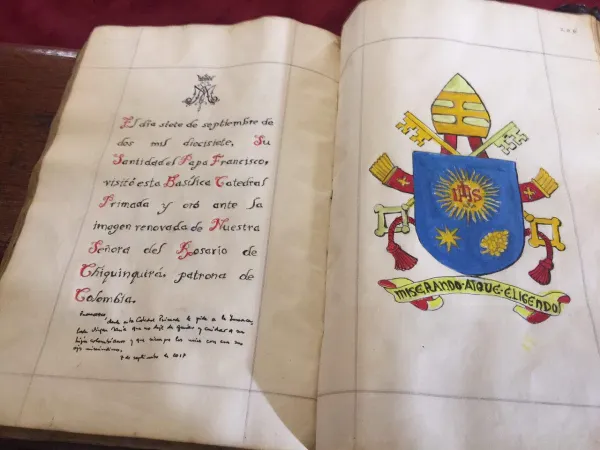 El día siete de septiembre de
dos mil diecisiete, Su
Santidad el Papa Francisco,
visitó esta Basílica Catedral
Primada y oró ante la
imagen renovada de Nuestra
Señora del Rosario de
Chiquinquirá, patrona de
Colombia.
desde esta Catedral Primada le pido a la Inmaculada
Virgen María que no deje de guiar y cuidar a sus
hijos colombianos y que siempre los mire con sus
ojos misericordiosos.
7 de septiembre de 2017
IHS
MISERANDO·ATQUE·ELIGENDO